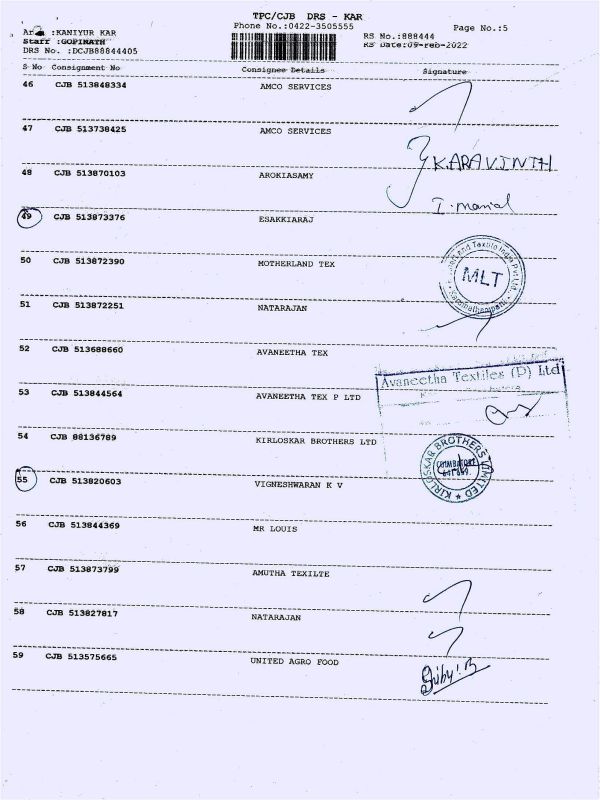 TPC/CJB DRS - KAR
Area :KANIYUR KAR
Phone No.:0422-3505555
Page No.:5
Staff :GOPINATH
RS No.:888444
DRS No. :DCJB88844405
RS Date:09-Feb-2022
S No Consignment No Consignee Details Signature
46 CJB 513848334 AMCO SERVICES
47 CJB 513738425 AMCO SERVICES
K.ARAVINTH
48 CJB 513870103 AROKIASAMY
49 CJB 513873376 ESAKKIARAJ
50 CJB 513872390 MOTHERLAND TEX
MLT
51 CJB 513872251 NATARAJAN
52 CJB 513688660 AVANEETHA TEX
Avaneetha Textiles (P) Ltd
53 CJB 513844564 AVANEETHA TEX P LTD
54 CJB 88136789 KIRLOSKAR BROTHERS LTD
KIRLOSKAR BROTHERS LIMITED
COIMBATORE
55 CJB 513820603 VIGNESHWARAN K V
56 CJB 513844369 MR LOUIS
57 CJB 513873799 AMUTHA TEXILTE
58 CJB 513827817 NATARAJAN
59 CJB 513575665 UNITED AGRO FOOD